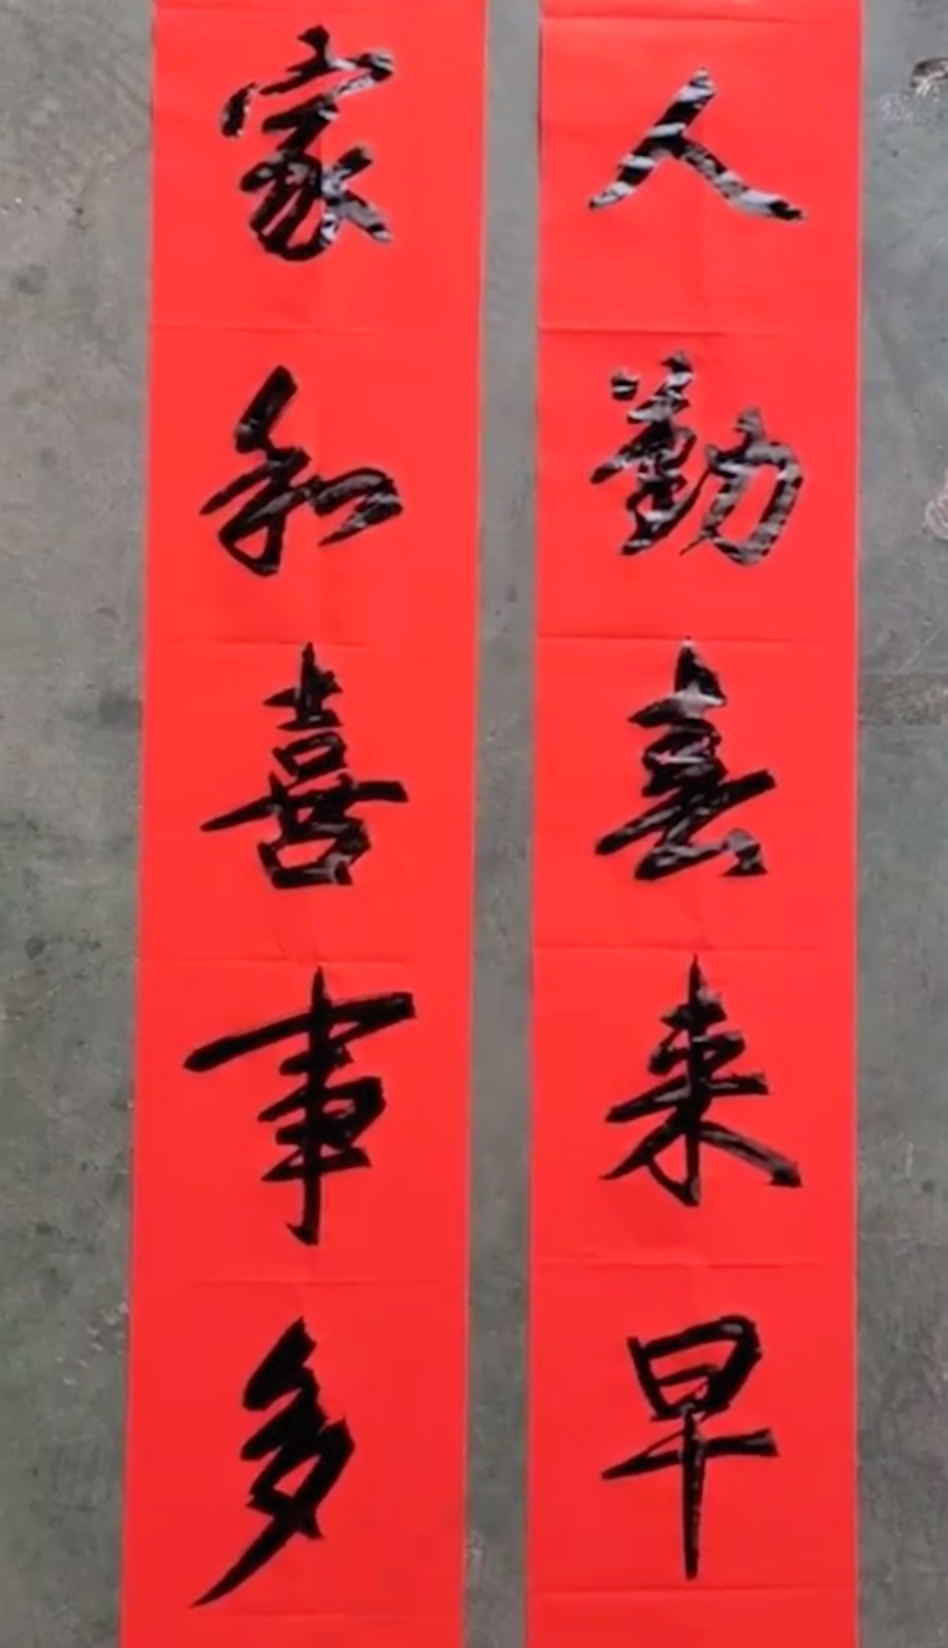 人勤喜来早
家和喜事多